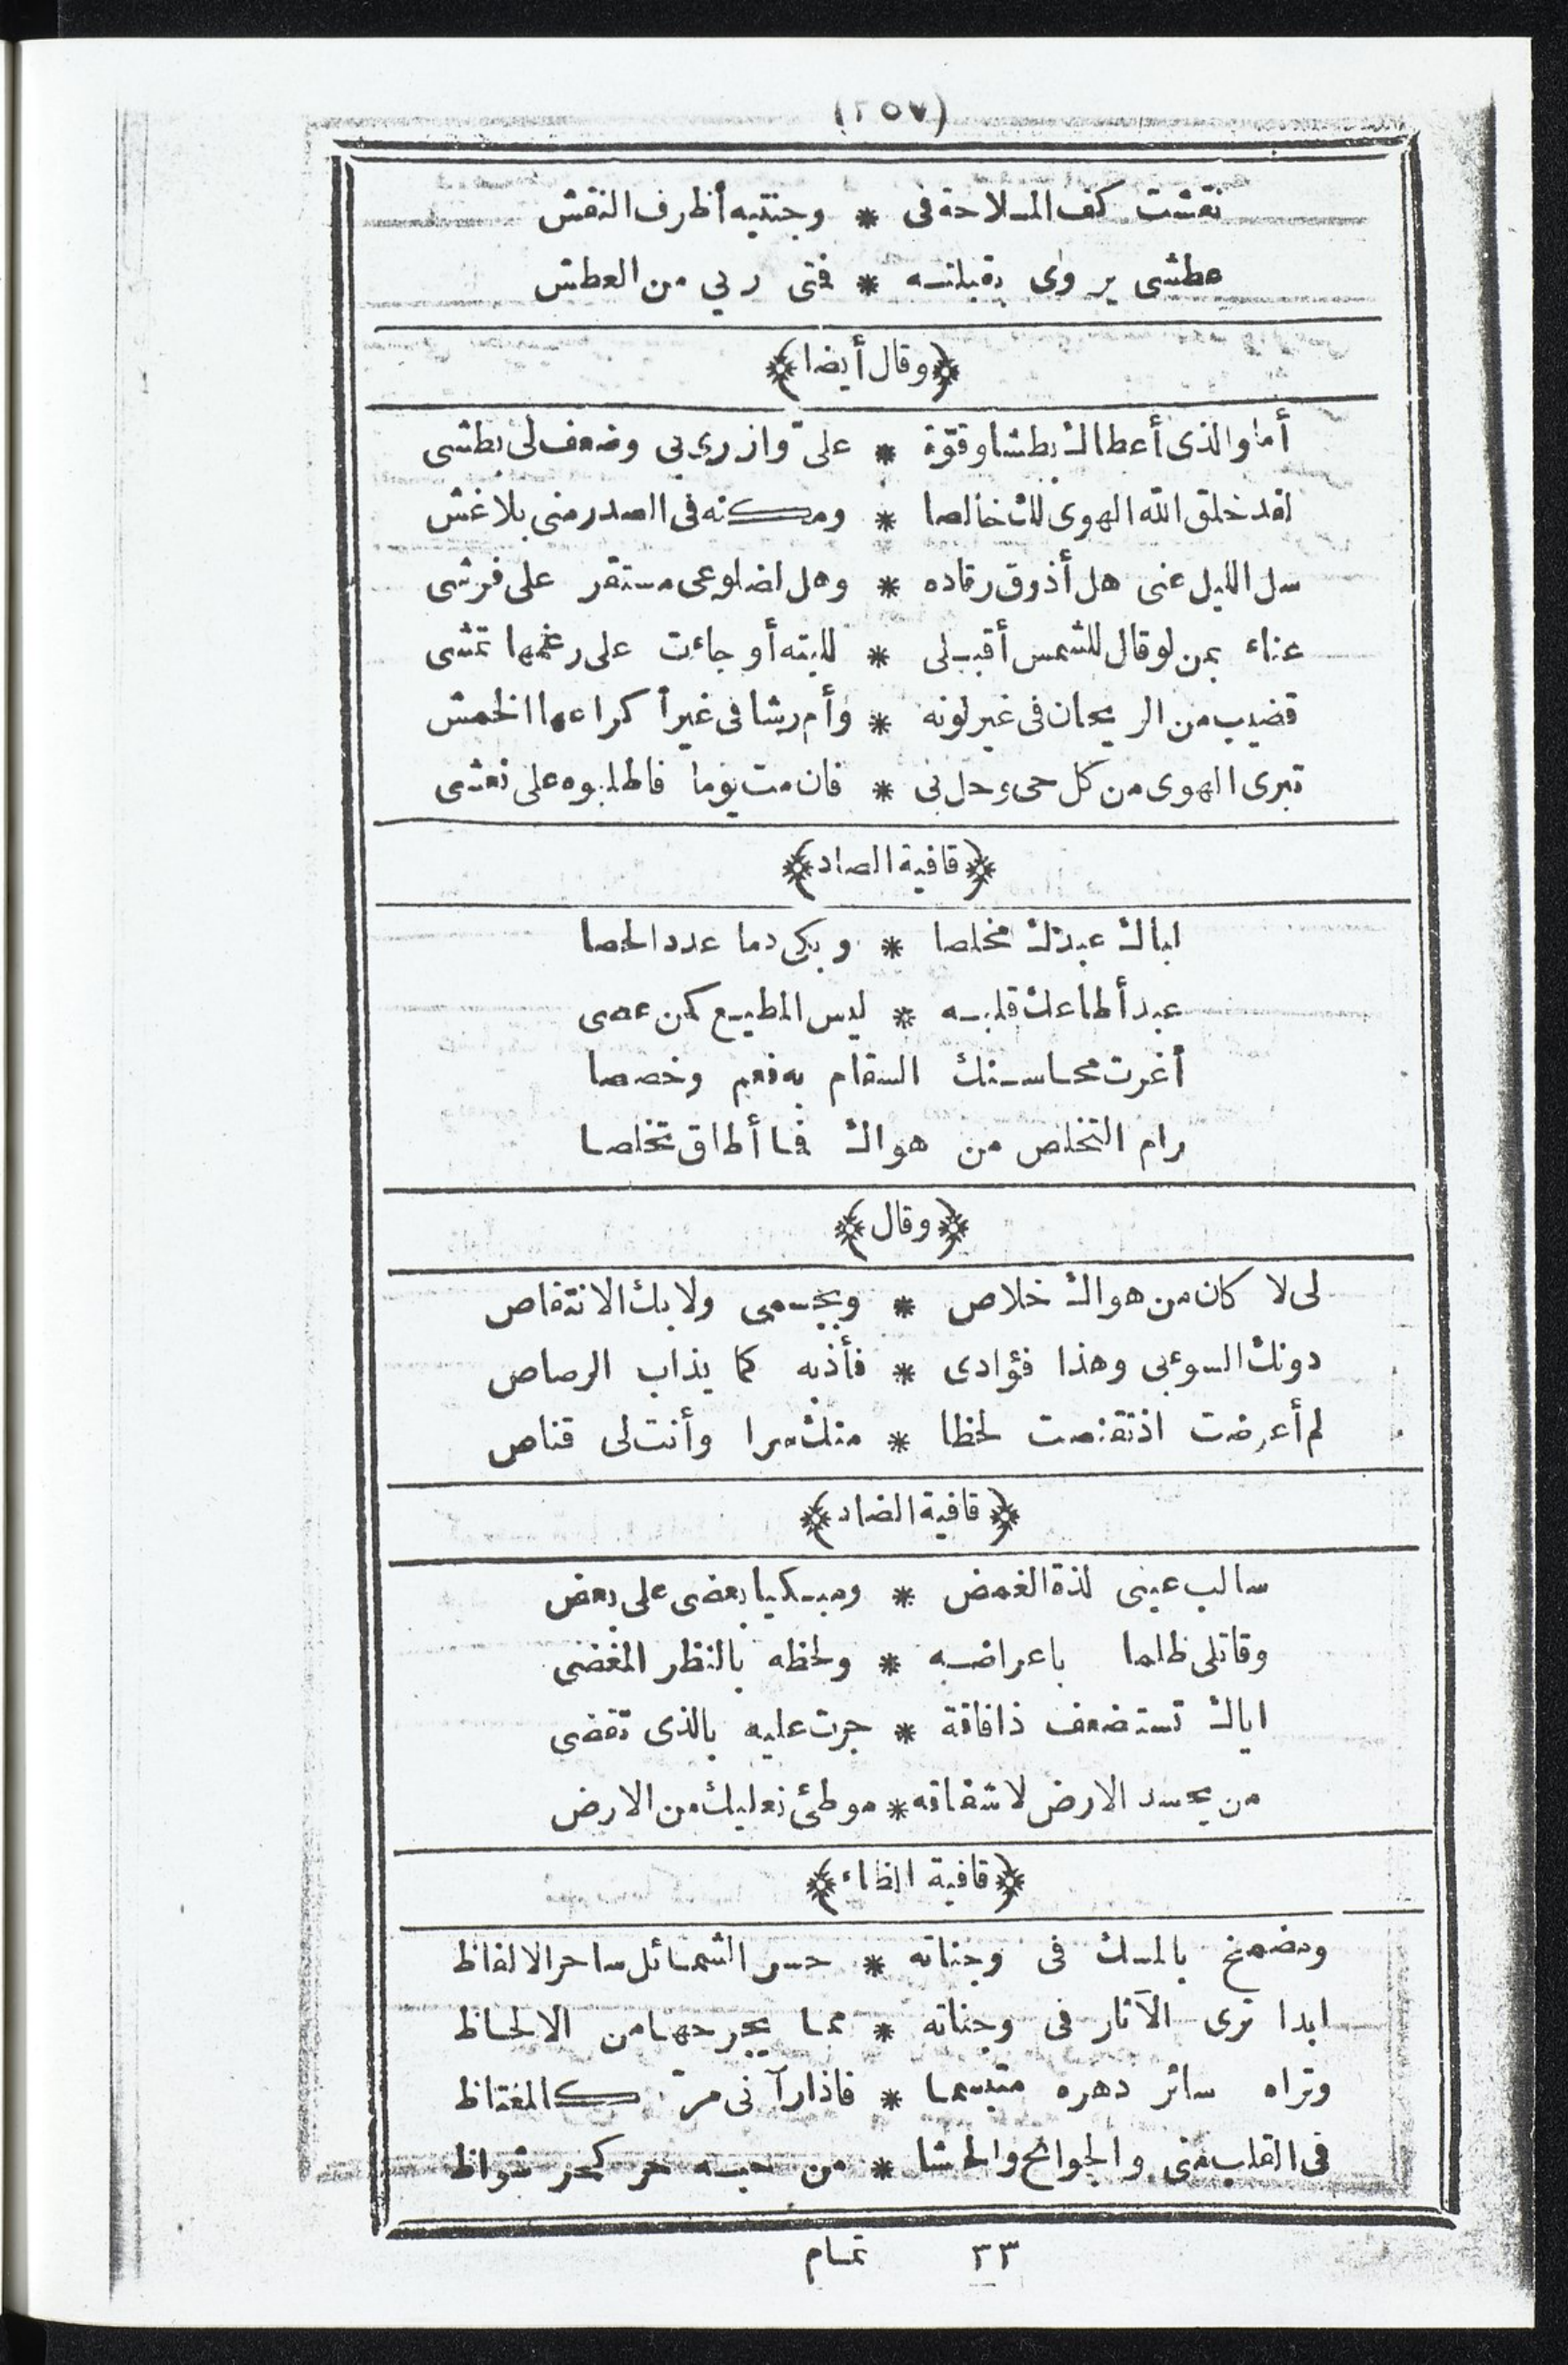 (٢٥٧)
نقشت كف الملاحة فى * وجنتيه أظرف النقش
عطشى يروى بقبلته * فتى ربي من العطش
﴿وقال أيضا﴾
أما والذى أعطاك بطشا وقوّة * علىّ وازرى بي وضعف لى بطشى
لقد خلق الله الهوى لك خالصا * ومكنه فى الصدر منى بلا غش
سل الليل عنى هل أذوق رقاده * وهل لضلوعى مستقر على فرشى
عناء بمن لو قال للشمس أقبلى * للبته أو جاءت على رغمها تمشى
قضيب من الريحان فى غير لونه * وأم رشا فى غير أكراعها الخمش
تبرى الهوى من كل حى وحل بى * فان مت يوما فاطلبوه على نعشى
﴿قافية الصاد﴾
اباك عبدك مخلصا * وبكى دما عدد الحصا
عبد أطاعك قلبه * ليس المطيع كمن عصى
أغرت محاسنك السقام به فعم وخصصا
رام التخلص من هواك فما أطاق تخلصا
﴿وقال﴾
لى لا كان من هواك خلاص * وبجسمى ولا بك الانتقاص
دونك السوعى وهذا فؤادى * فأذبه كما يذاب الرصاص
لم أعرضت اذ تقنصت لحظا * منك سرا وأنت لى قناص
﴿قافية الضاد﴾
سالب عينى لذة الغمض * ومبكيا بعضى على بعض
وقاتلى ظلما باعراضه * ولحظه بالنظر المغضى
اياك تستضعف ذا فاقة * جرت عليه بالذى تقضى
من يحسد الارض لاشفاقه * موطئ نعليك من الارض
﴿قافية الظاء﴾
ومضمخ بالمسك فى وجناته * حسن الشمائل ساحر الالفاظ
ابدا ترى الآثار فى وجناته * مما يجرحها من الالحاظ
وتراه سائر دهره متبسما * فاذا رآنى مرّ كالمغتاظ
فى القلب منى والجوانح والحشا * من حبه حر كحر شواظ
٣٣ تمام